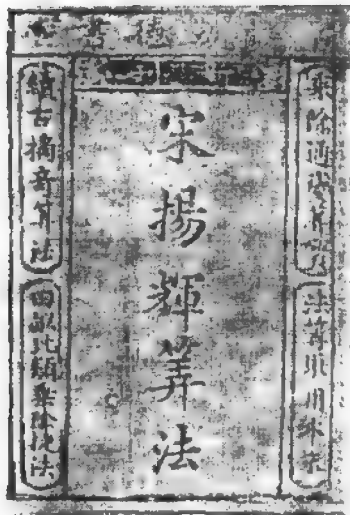 乘除通變筭寶
法筭取用本末
宋揚輝筭法
續古摘奇筭法
田畝比類乘除捷法